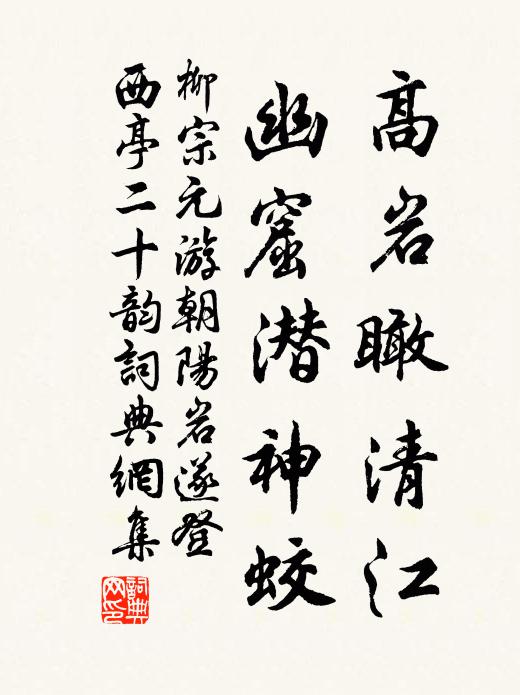 高岩瞰清江
幽窟潜神蛟
柳宗元游朝陽岩遂登
西亭二十韵詞典網集
詞典
网印